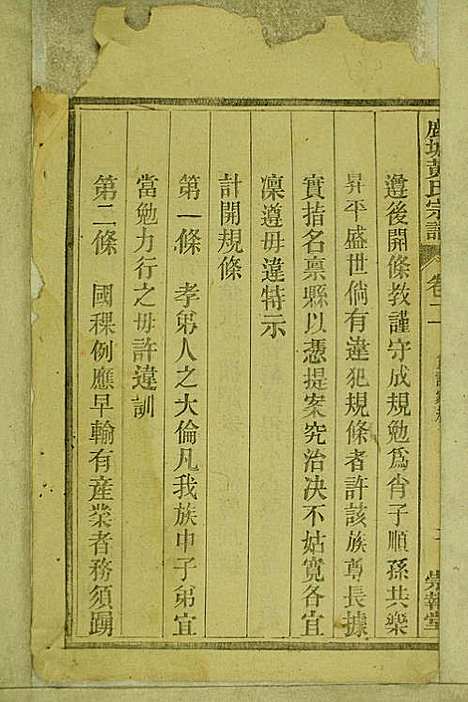 黃氏宗譜 卷二
崇報堂
遵後開條教謹守成規勉爲肖子順孫共樂
昇平盛世倘有違犯規條者許該族尊長據
實指名禀縣以憑提案究治决不姑寬各宜
凜遵毋違特示
計開規條
第一條 孝弟人之大倫凡我族中子弟宜
當勉力行之毋許違訓
第二條 國稞例應早輸有産業者務須踴